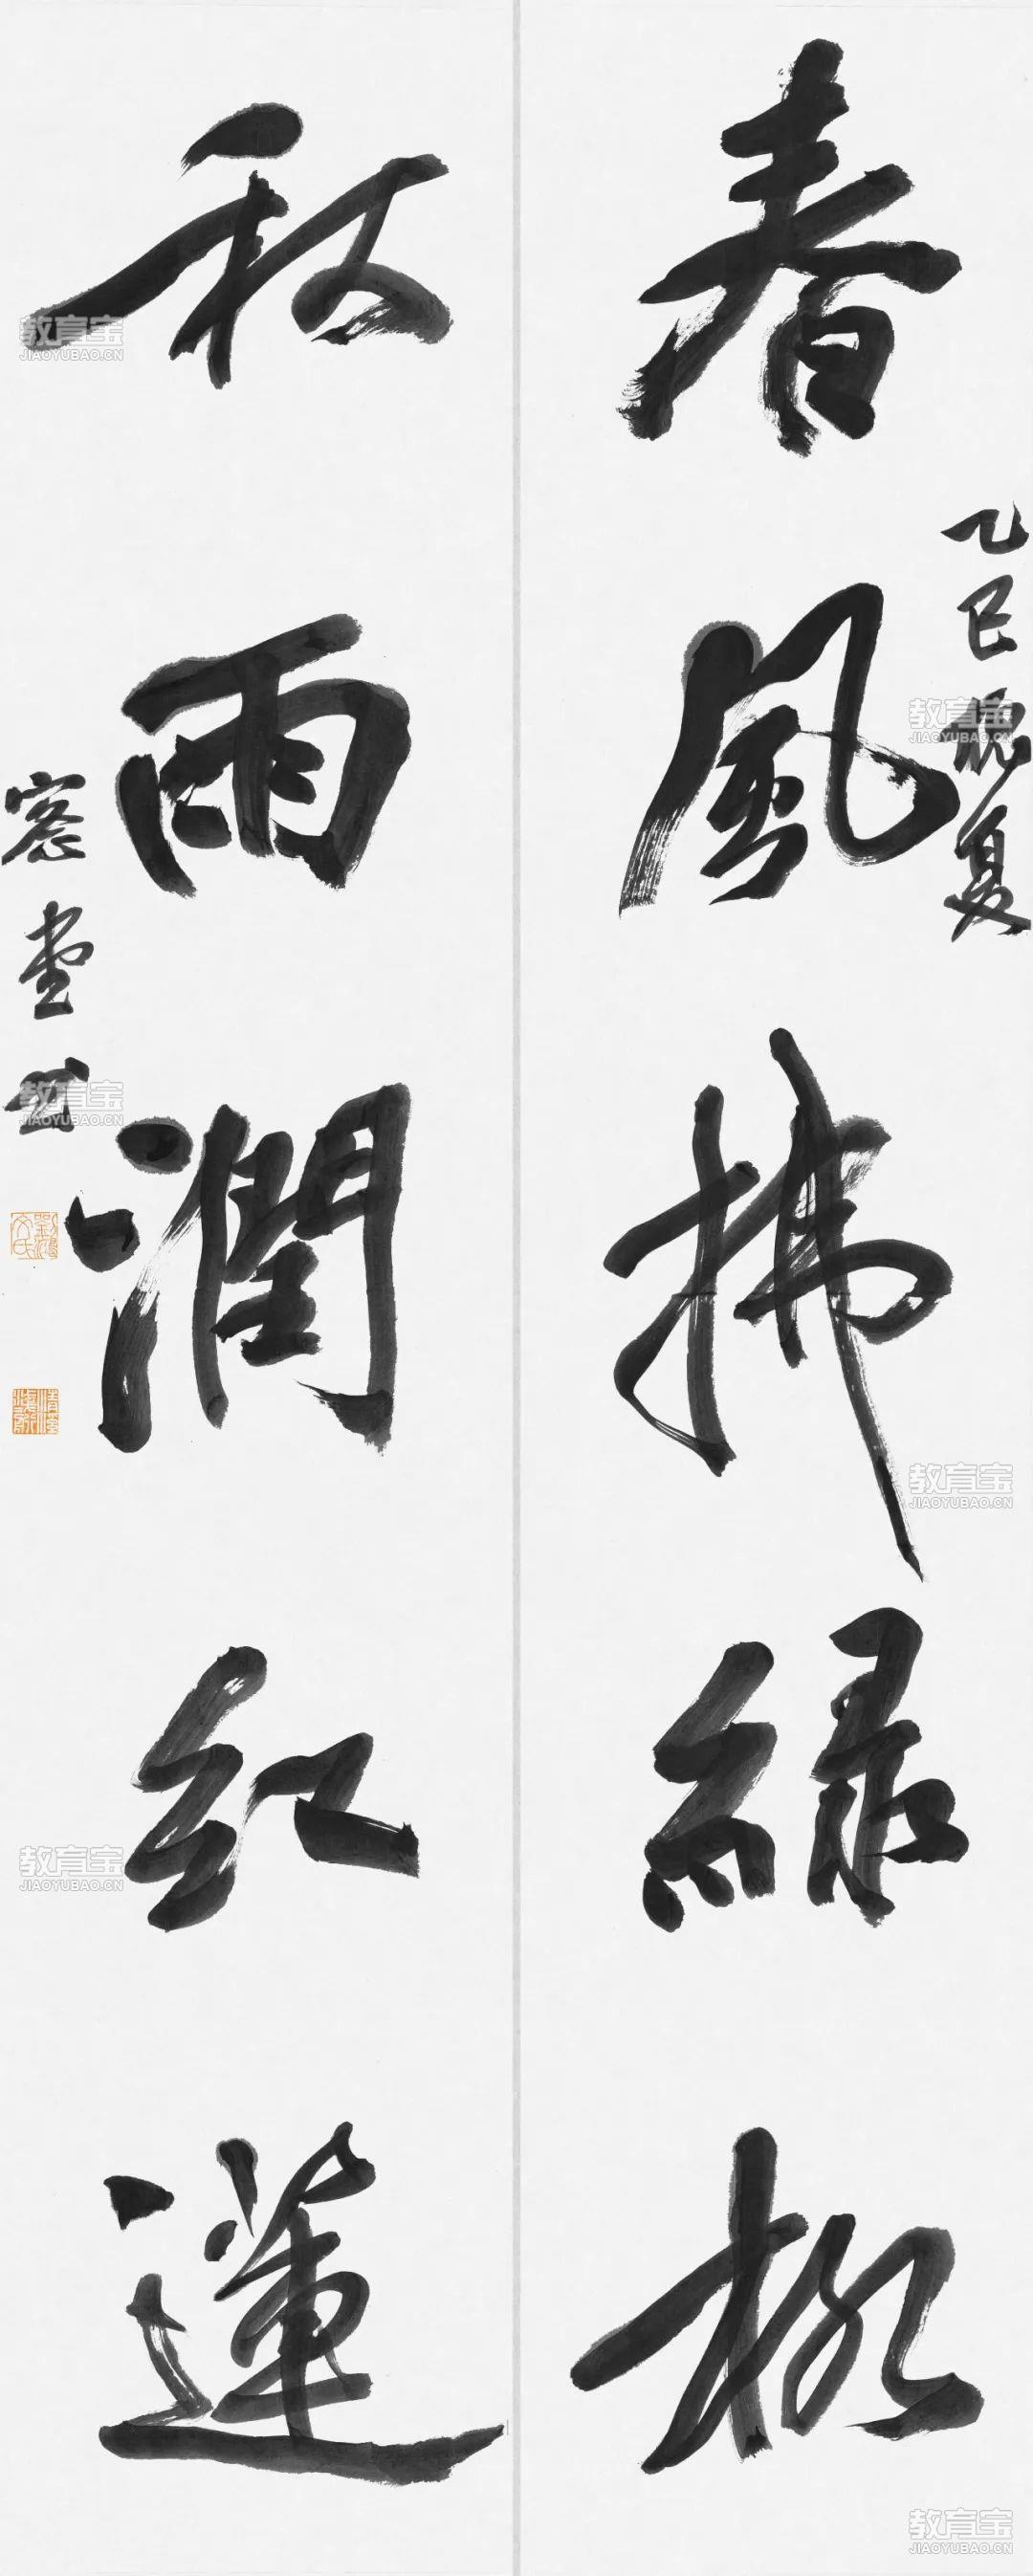 春風拂綠柳
乙巳槐夏
秋雨潤紅蓮
窓堂書
教育宝
JIAOYUBAO.CN
教育宝
JIAOYUBAO.CN
教育宝
JIAOYUBAO.CN
教育宝
JIAOYUBAO.CN
教育宝
JIAOYUBAO.CN
教育宝
JIAOYUBAO.CN